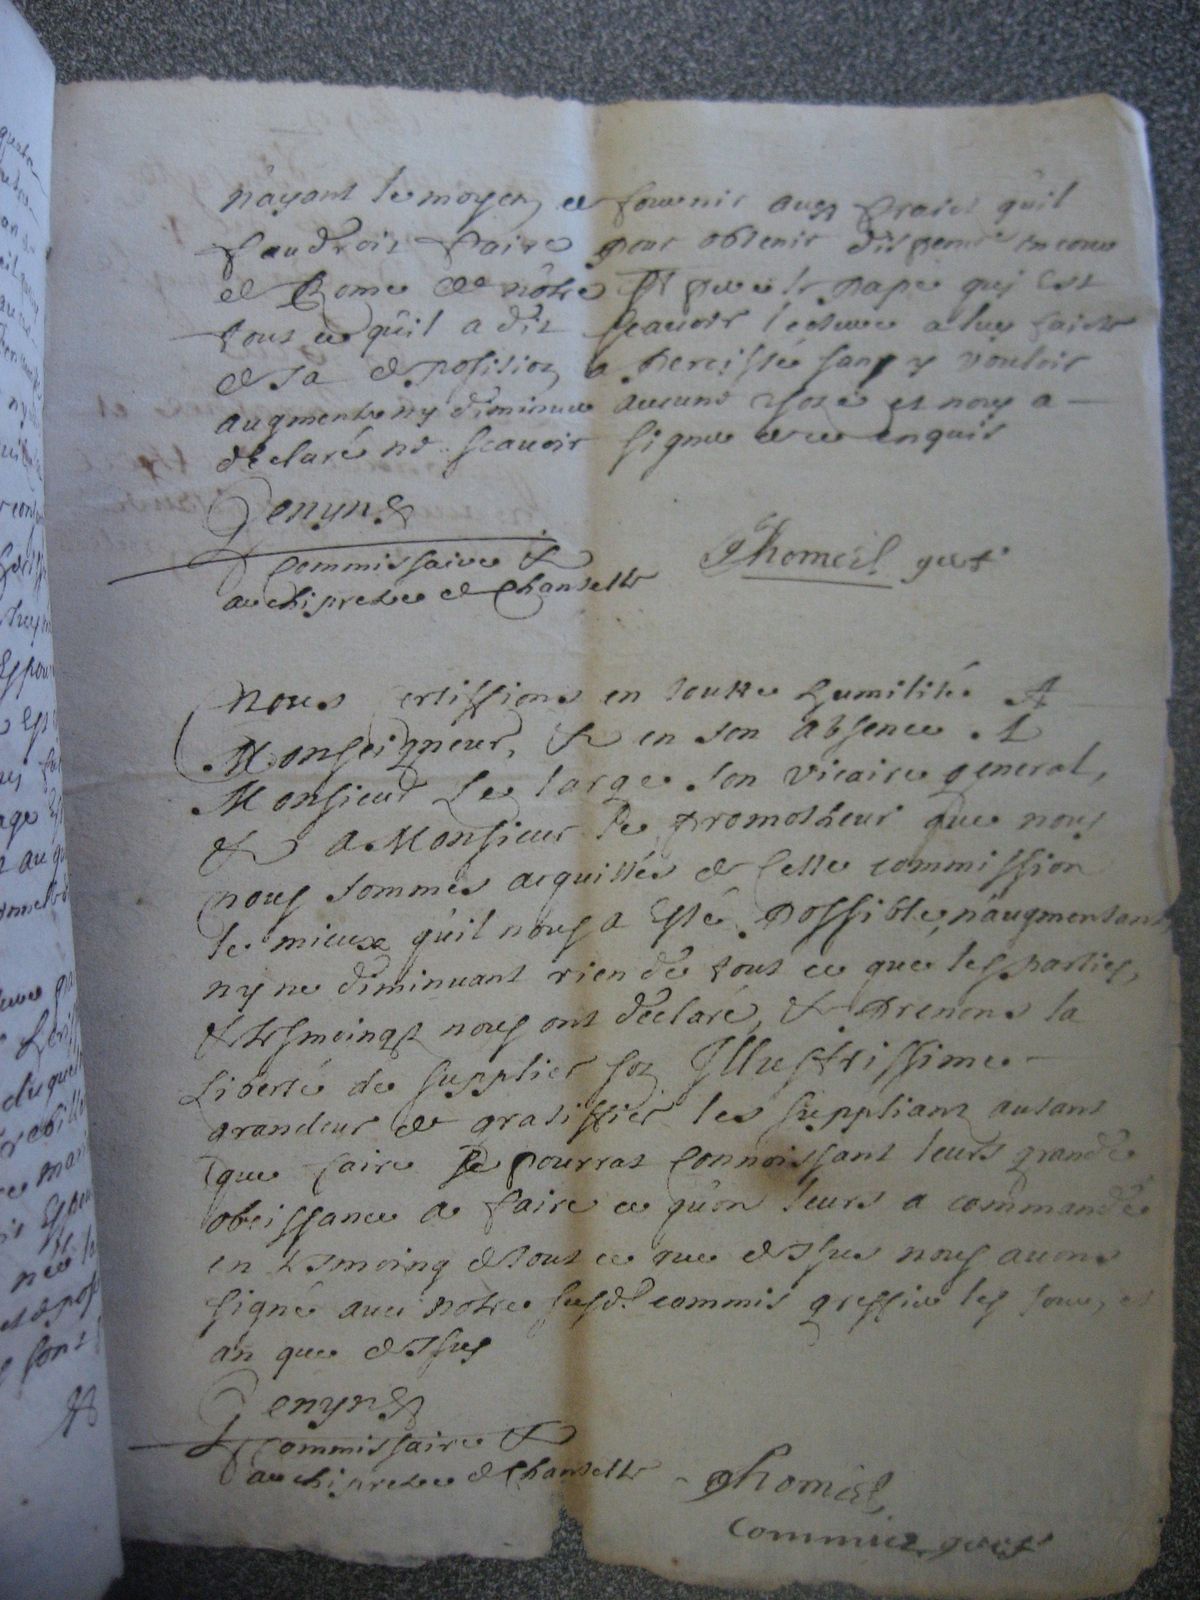 n'ayant le moyen de fournir aux fraict qu'il
faudroit faire pour obtenir dispence en cour
de Rome de nôtre St pere le pape quj est
tout ce qu'il a dit scauoir lecture a luy faicte
de sa deposition a percisté sans y vouloir
augmenter ny diminuer aucune chose et nous a
declaré ne scauoir signer de ce enquis
Genyn
commissaire &
archiprestre de Chantelle
Thomeil greff
Nous Certiffions en toutte humilité A
Monseigneur, & en son absence A
Monsieur Le large son vicaire general,
& a Monsieur le promotheur que nous
nous sommes acquittés de Cette commission
le mieux qu'il nous a Esté possible, n'augmentant
ny ne diminuant rien de tout ce que les parties,
& tesmoings nous ont declaré, & prenons la
Liberté de supplier son Illustrissime
grandeur de gratiffier les suppliant autant
que faire se pourrat Connoissant leurs grande
obeissance a faire ce qu'on leurs a commandé
en tesmoing de tout ce que dessus nous auons
signé auec notre susd. commis greffier les jour, et
an que dessus
Genyn
Commissaire &
archiprestre de Chantelle
Thomeil
Commis greff